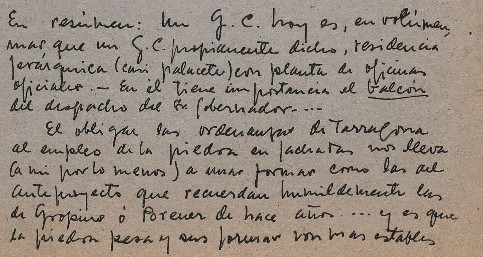 En resúmen: Un G.C. hoy es, en volúmen,
mas que un G.C. propiamente dicho, residencia
jerárquica (casi palacete) con planta de oficinas
oficiales. – En él tiene importancia el balcón
del despacho del Sr. Gobernador....
El obligar las ordenanzas de Tarragona
al empleo de la piedra en fachadas nos lleva
(a mi por lo menos) a unas formas como las del
anteproyecto que recuerdan humildemente las
de Gropius ó de hace años .... y es que
la piedra pesa y sus formas son mas estables